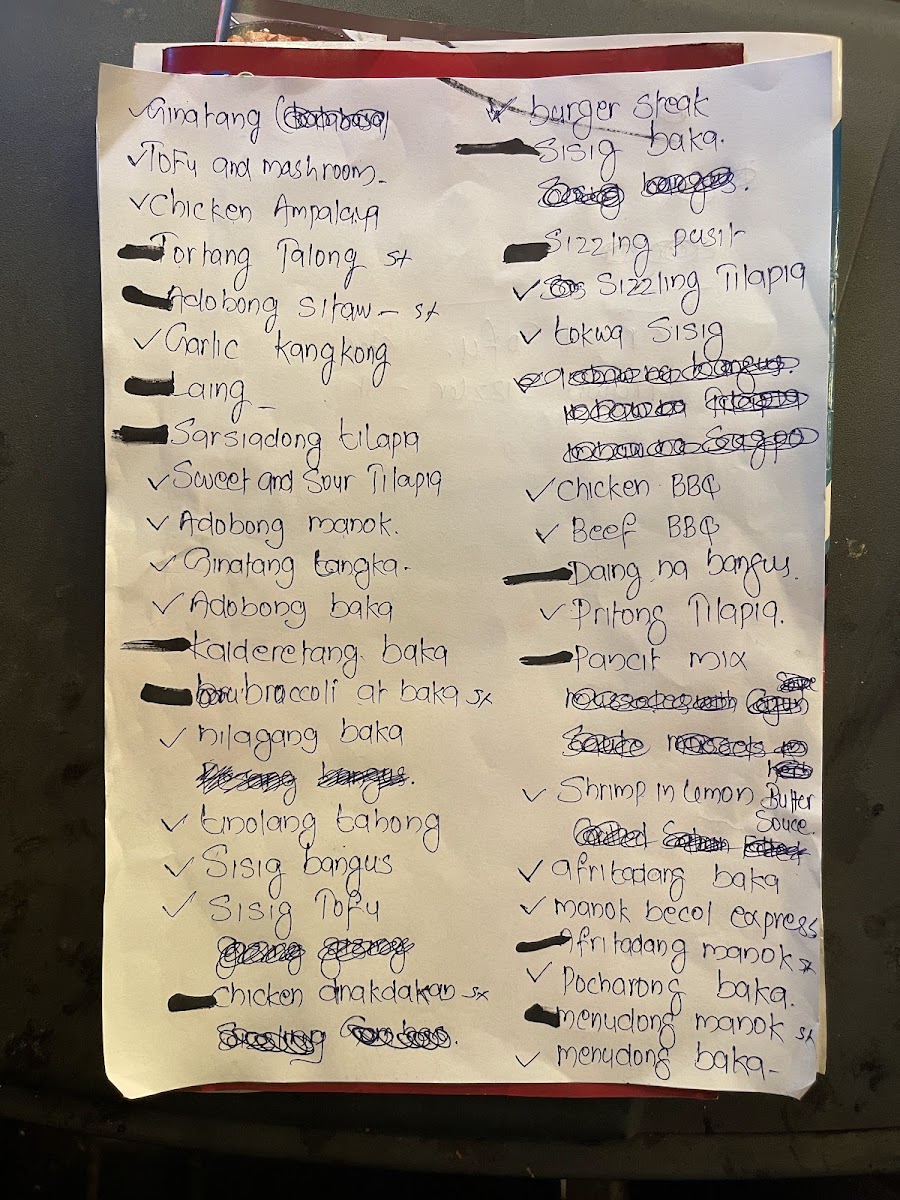 Ginatang
Tofu and mashroom-
Chicken Ampalaya
Tortang Talong sx
Adobong sitaw - sx
Garlic kangkong
Laing -
Sarsiadong tilapia
Sweet and Sour Tilapia
Adobong manok.
Ginatang tangka.
Adobong baka
kalderetang baka
broccoli at baka sx
nilagang baka
tinolang tahong
Sisig bangus
Sisig Tofu
chicken dnakdakan sx
burger steak
Sisig baka.
Sizzlng pusit
Sizzling Tilapia
tokwa Sisig
Chicken BBQ
Beef BBQ
Daing na bangus.
Pritong Tilapia.
Pancit mix
Shrimp in lemon Butter
Souce.
afritadang baka
manok becol express
Afritadang manok sx
Pocharong baka.
menudong manok sx
menudong baka-